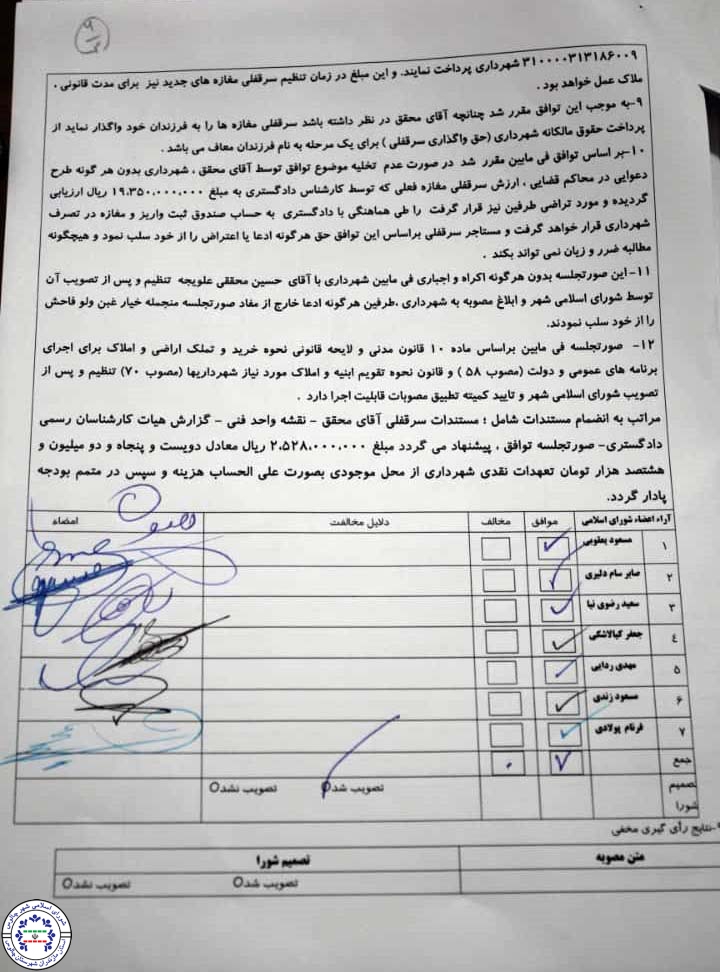 ۹
۳۱۰۰۰۰۳۱۳۱۸۶۰۰۹ شهرداری پرداخت نمایند. و این مبلغ در زمان تنظیم سرقفلی مغازه های جدید نیز برای مدت قانونی .
ملاک عمل خواهد بود .
۹-به موجب این توافق مقرر شد چنانچه آقای محقق در نظر داشته باشد سرقفلی مغازه ها را به فرزندان خود واگذار نماید از
پرداخت حقوق مالکانه شهرداری (حق واگذاری سرقفلی ) برای یک مرحله به نام فرزندان معاف می باشد .
۱۰-بر اساس توافق فی مابین مقرر شد در صورت عدم تخلیه موضوع توافق توسط آقای محقق ، شهرداری بدون هر گونه طرح
دعوایی در محاکم قضایی ، ارزش سرقفلی مغازه فعلی که توسط کارشناس دادگستری به مبلغ ۱۹،۳۵۰،۰۰۰،۰۰۰ ریال ارزیابی
گردیده و مورد تراضی طرفین نیز قرار گرفت را طی هماهنگی با دادگستری به حساب صندوق ثبت واریز و مغازه در تصرف
شهرداری قرار خواهد گرفت و مستاجر سرقفلی براساس این توافق حق هرگونه ادعا یا اعتراض را از خود سلب نمود و هیچگونه
مطالبه ضرر و زیان نمی تواند بکند .
۱۱-این صورتجلسه بدون هرگونه اکراه و اجباری فی مابین شهرداری با آقای حسین محققی علویجه تنظیم و پس از تصویب آن
توسط شورای اسلامی شهر و ابلاغ مصوبه به شهرداری ،طرفین هرگونه ادعا خارج از مفاد صورتجلسه منجمله خیار غبن ولو فاحش
را از خود سلب نمودند.
۱۲- صورتجلسه فی مابین براساس ماده ۱۰ قانون مدنی و لایحه قانونی نحوه خرید و تملک اراضی و املاک برای اجرای
برنامه های عمومی و دولت (مصوب ۵۸ ) و قانون نحوه تقویم ابنیه و املاک مورد نیاز شهرداریها (مصوب ۷۰) تنظیم و پس از
تصویب شورای اسلامی شهر و تایید کمیته تطبیق مصوبات قابلیت اجرا دارد .
مراتب به انضمام مستندات شامل ؛ مستندات سرقفلی آقای محقق - نقشه واحد فنی - گزارش هیات کارشناسان رسمی
دادگستری- صورتجلسه توافق ، پیشنهاد می گردد مبلغ ۲،۵۲۸،۰۰۰،۰۰۰ ریال معادل دویست و پنجاه و دو میلیون و
هشتصد هزار تومان تعهدات نقدی شهرداری از محل موجودی بصورت علی الحساب هزینه و سپس در متمم بودجه
پادار گردد.
آراء اعضاء شورای اسلامی موافق مخالف دلایل مخالفت امضاء
۱ مسعود یعقوبی
۲ صابر سام دلیری
۳ سعید رضوی نیا
٤ جعفر کیالاشکی
۵ مهدی ردایی
۶ مسعود زندی
۷ فرنام پولادی
جمع ۷ ۰
تصمیم تصویب شد تصویب نشد
شورا
۹-نتایج رأی گیری مخفی
متن مصوبه تصمیم شورا
تصویب شد تصویب نشد
شورای اسلامی شهر چالوس
استان مازندران شهرستان چالوس